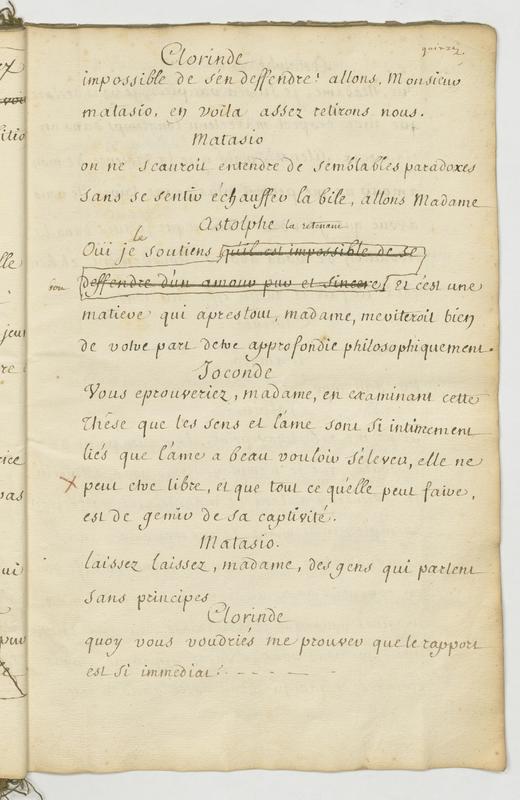 quinze
Clorinde
impossible de s'en deffendre! allons, Monsieur
matasio, en voila assez retirons nous.
Matasio
on ne scauroit entendre de semblables paradoxes
sans se sentir échauffer la bile, allons Madame
Astolphe la retenant
le
Oüi je soutiens qu'il est impossible de se
deffendre d'un amour pur et sincere, Et c'est une
matiere qui aprestout, madame, meriteroit bien
de votre part detre approfondie philosophiquement.
Joconde
Vous eprouveriez, madame, en examinant cette
Thêse que les sens et l'ame sont si intimement
liés que l'ame a beau vouloir s'élever, elle ne
peut etre libre, et que tout ce qu'elle peut faire,
est de gemir de sa captivité.
Matasio.
laissez laissez, madame, des gens qui parlent
sans principes
Clorinde
quoy vous voudriés me prouver que le rapport
est si immediat! - - - - -